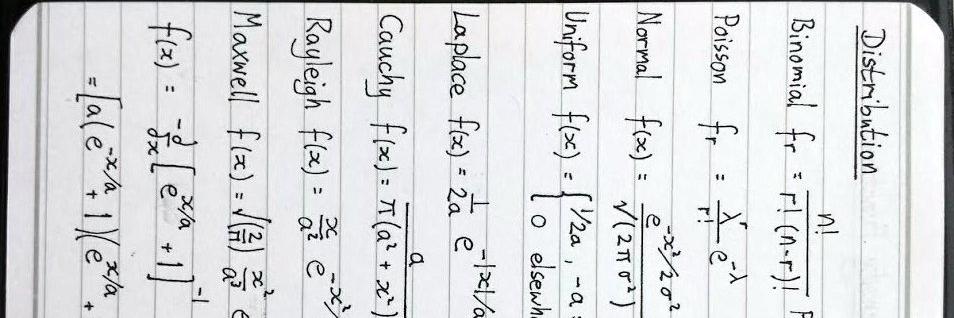 Distribution
Binomial fr = n! / r!(n-r)!
Poisson fr = λ^r / r! e^-λ
Normal f(x) = e^-x²/2σ² / √(2πσ²)
Uniform f(x) = { 1/2a, -a
0
Laplace f(x) = 1/2a e^-|x|/a
Cauchy f(x) = a / π(a² + x²)
Rayleigh f(x) = x/a² e^-x²/
Maxwell f(x) = √(2/π) x²/a³ e
f(x) = -∂/∂x [e^x/a + 1]^-1
= [a(e^-x/a + 1)(e^x/a +